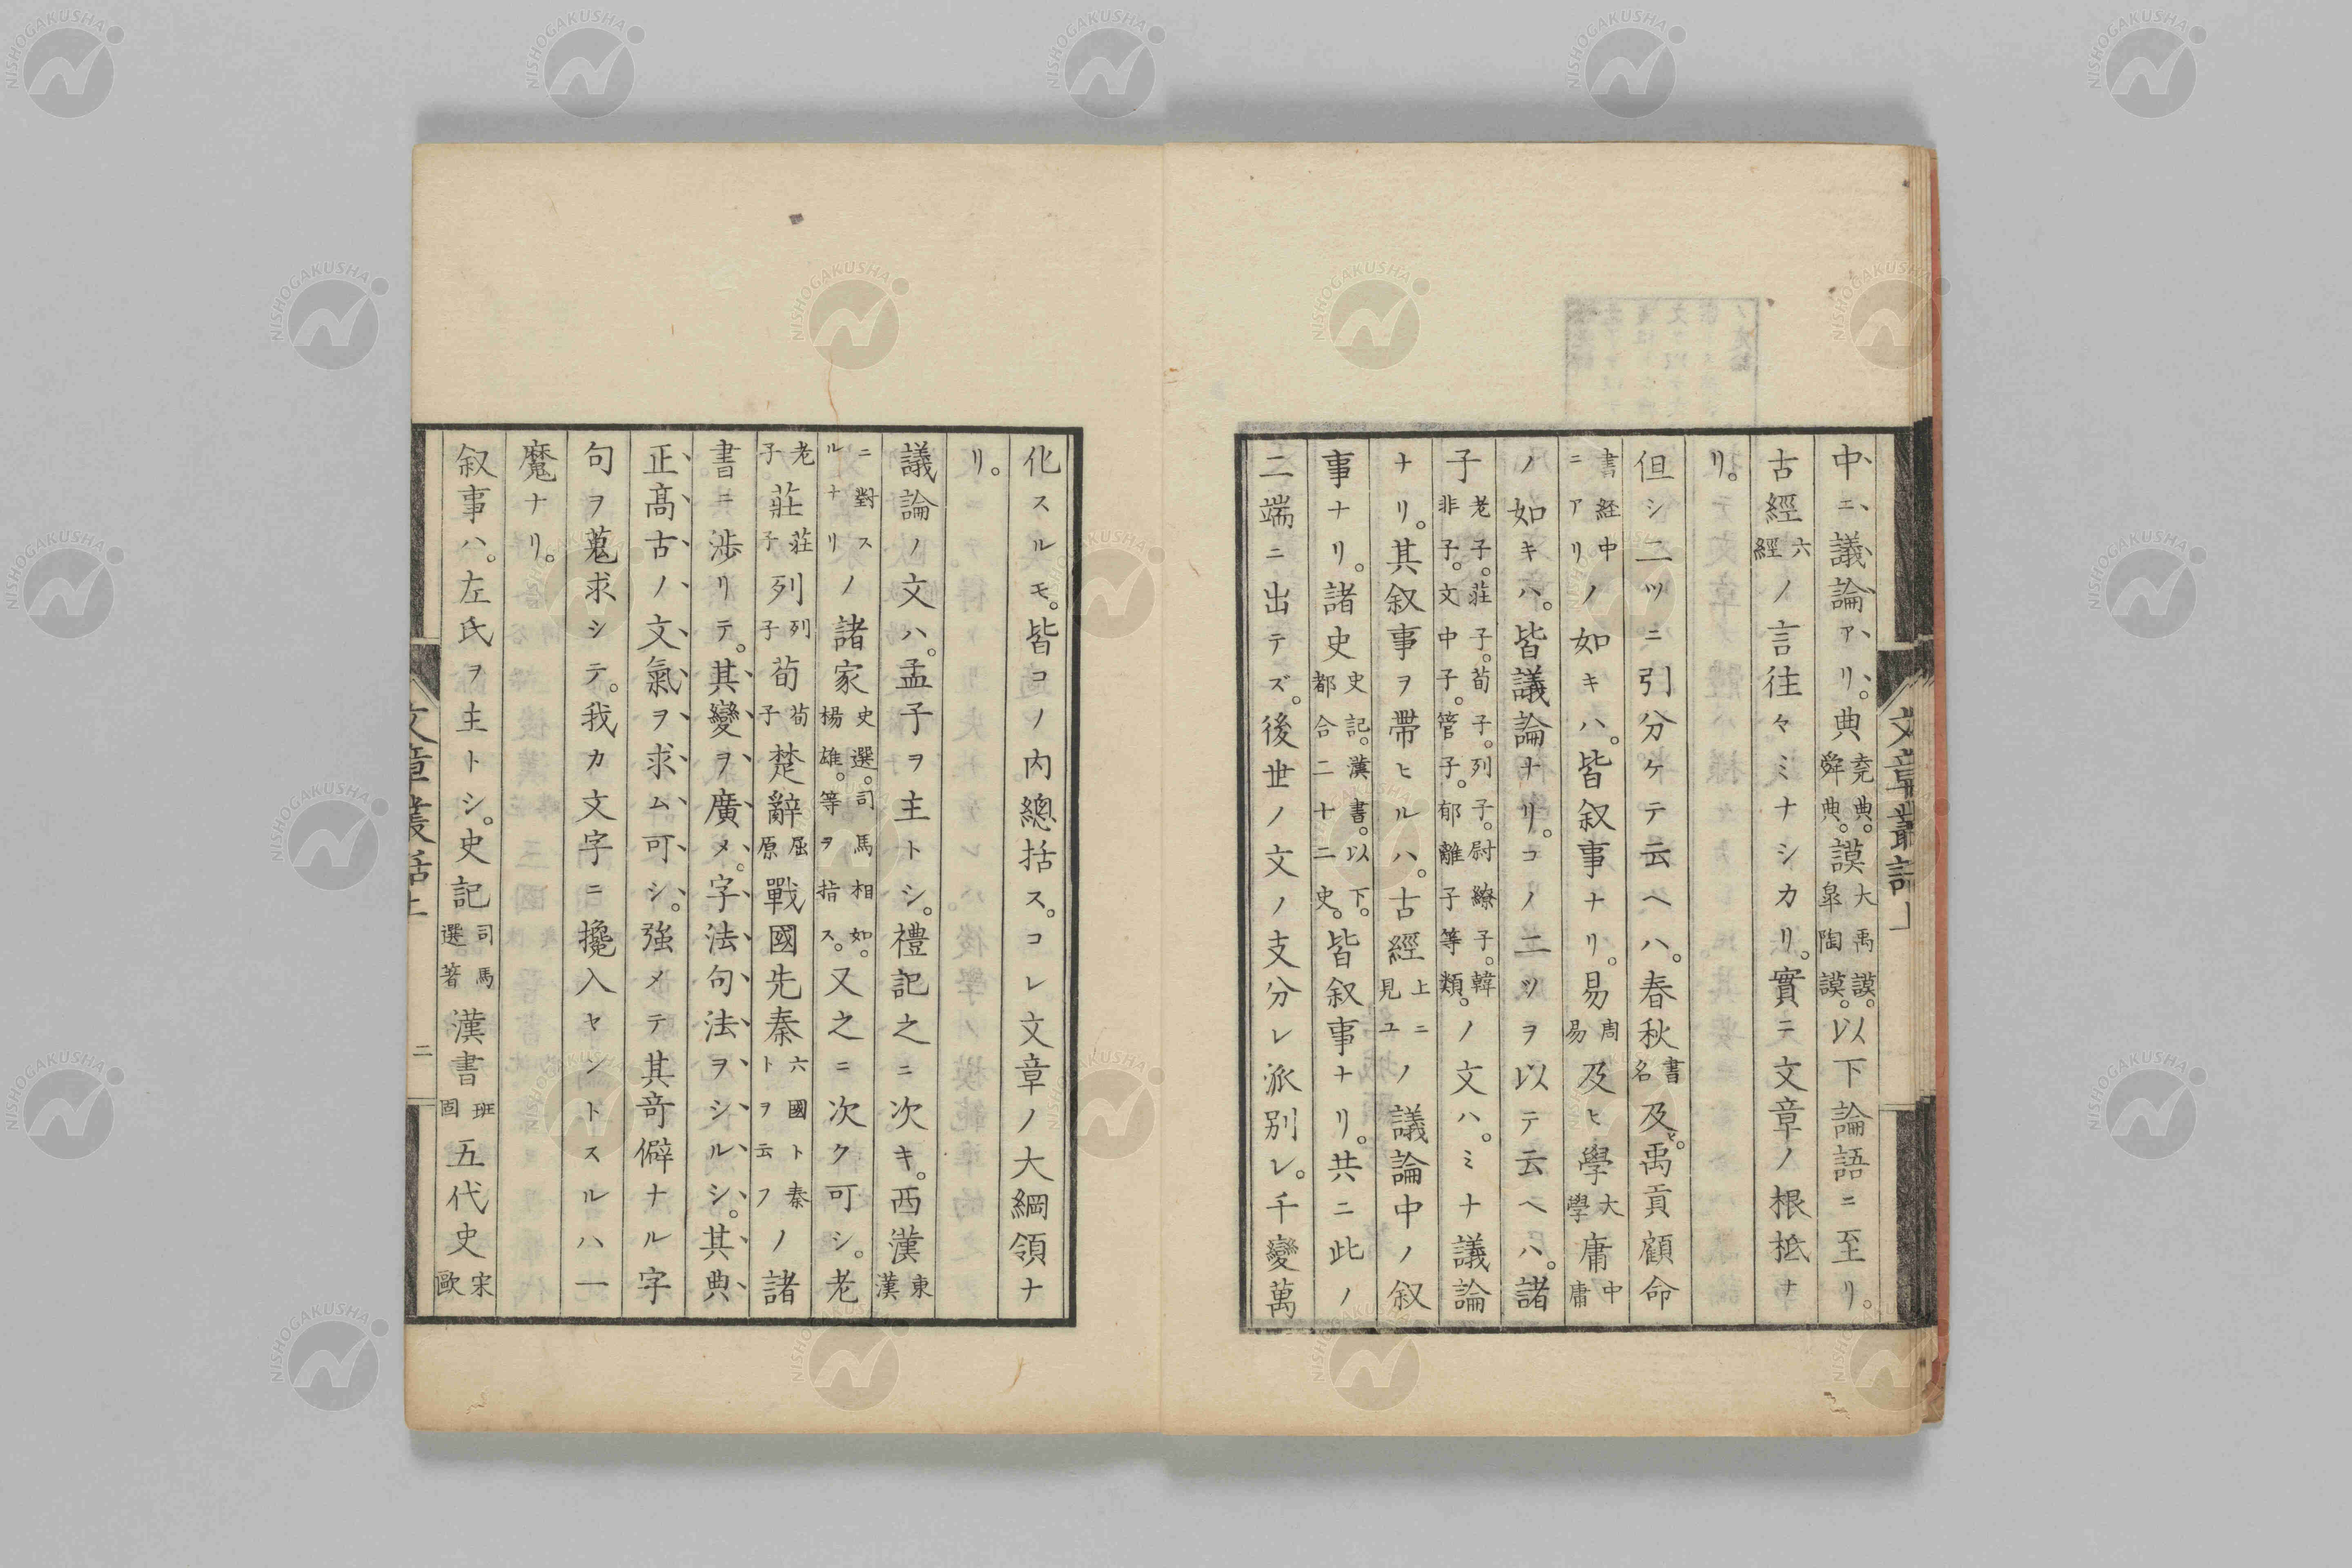 中ニ議論アリ。典堯典。舜典。謨大禹謨。皐陶謨。以下論語ニ至リ。
古經六經ノ言往々ミナシカリ。實ニ文章ノ根柢ナ
リ。
但シ二ツニ引分ケテ云ヘハ。春秋書名及ヒ。禹貢顧命
書経中ニアリノ如キハ。皆叙事ナリ。易周易及ヒ學大學庸中庸
ノ如キハ。皆議論ナリ。コノ二ツヲ以テ云ヘハ。諸
子老子。莊子。荀子。列子。尉繚子。韓非子。文中子。管子。郁離子等類。ノ文ハ。ミナ議論
ナリ。其叙事ヲ帶ヒルハ。古經上ニ見ユノ議論中ノ叙
事ナリ。諸史史記。漢書。以下。都合二十二史。皆叙事ナリ。共ニ此ノ
二端ニ出テズ。後世ノ文ノ支分レ派別レ。千變萬
文章叢話上
化スルモ。皆コノ内總括ス。コレ文章ノ大綱領ナ
リ。
議論ノ文ハ。孟子ヲ主トシ。禮記之ニ次キ。西漢東漢
ニ對スルナリノ諸家史遷。司馬相如。楊雄。等ヲ指ス。又之ニ次ク可シ。老
老子莊莊子列列子荀荀子楚辭屈原戰國先秦六國ト秦トヲ云フノ諸
書ニ渉リテ。其變ヲ廣メ。字法句法ヲシルシ。其典
正高古ノ文氣ヲ求ム可シ。強メテ其奇僻ナル字
句ヲ蒐求シテ。我カ文字ニ攙入ヤシトスルハ一
魔ナリ。
叙事ハ。左氏ヲ主トシ。史記司馬遷著漢書班固五代史宋歐
文章叢話上
二
NISHOGAKUSHA